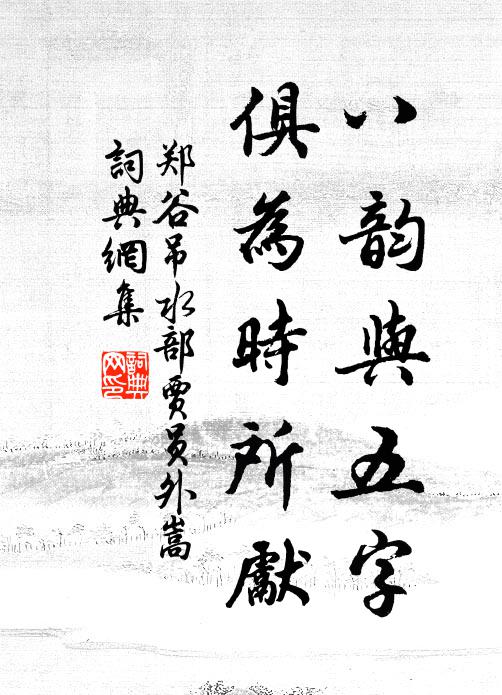 八韵與五字
俱為時所獻
郑谷吊水部贾员外嵩
詞典網集
詞典
网印